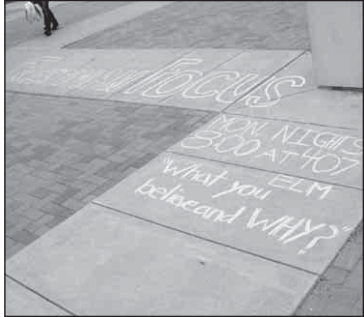 FOCUS
MON. NIGHTS
8:00 AT 407
ELM
"What you
believe and WHY?"